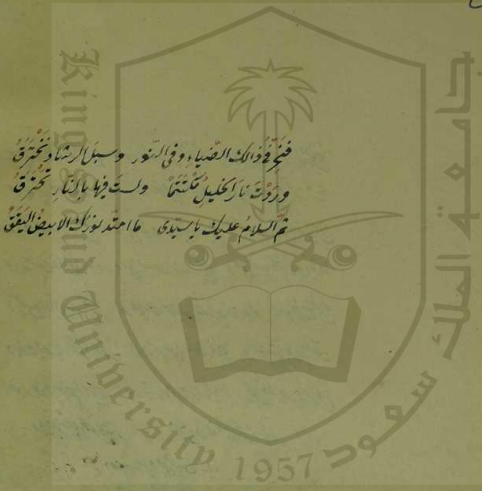 فنحن في ذالك الضياء وفي النور وسبل الرشاد نخترق
وردت نار الخليل مكتتما ولست فيها بالنار تحترق
ثم السلام عليك يا سيدي ما امتد نورك الابيض اليقق
King Saud University
1957
جامعة الملك سعود